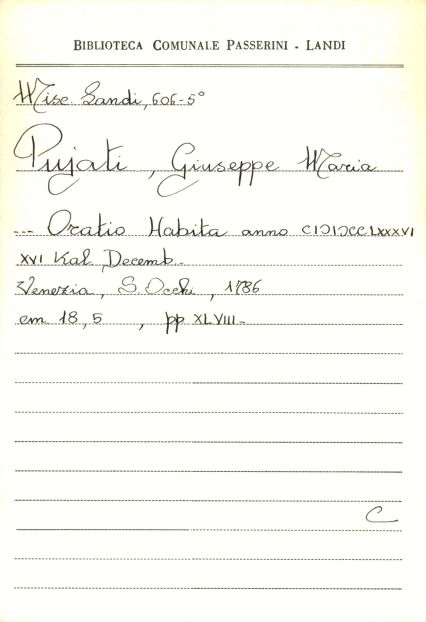 BIBLIOTECA COMUNALE PASSERINI - LANDI
Misc. Landi, 606-5°
Pujati, Giuseppe Maria
--- Oratio Habita anno CIↃIↃCCLXXXVI
XVI Kal. Decemb.
Venezia, S. Occhi, 1786
cm 18,5, pp XLVIII-
C